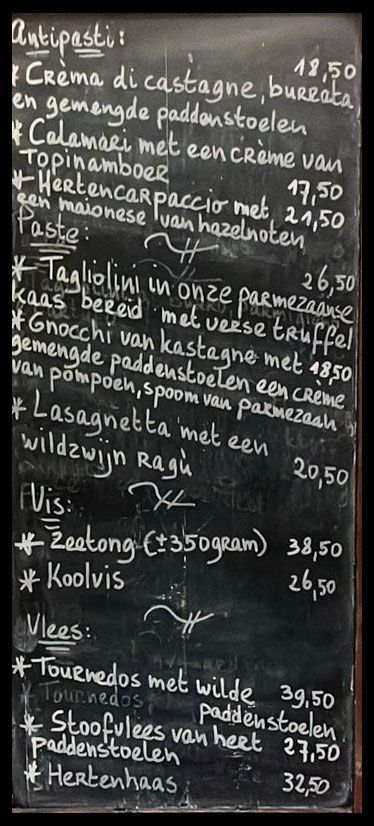 Antipasti:
18,50
* Crèma di castagne, burrata
en gemengde paddenstoelen
* Calamari met een crème van
Topinamboer
17,50
* Hertencarpaccio met 21,50
een maionese van hazelnoten
Paste:
26,50
* Tagliolini in onze parmezaanse
kaas bereid met verse truffel
* Gnocchi van kastagne met 18,50
gemengde paddenstoelen een crème
van pompoen, spoom van parmezaan
* Lasagnetta met een
wildzwijn Ragù 20,50
Vis:
* Zeetong (±350gram) 38,50
* Koolvis 26,50
Vlees:
* Tournedos met wilde 39,50
paddenstoelen
* Tournedos
* Stoofvlees van hert 27,50
paddenstoelen
* Hertenhaas 32,50